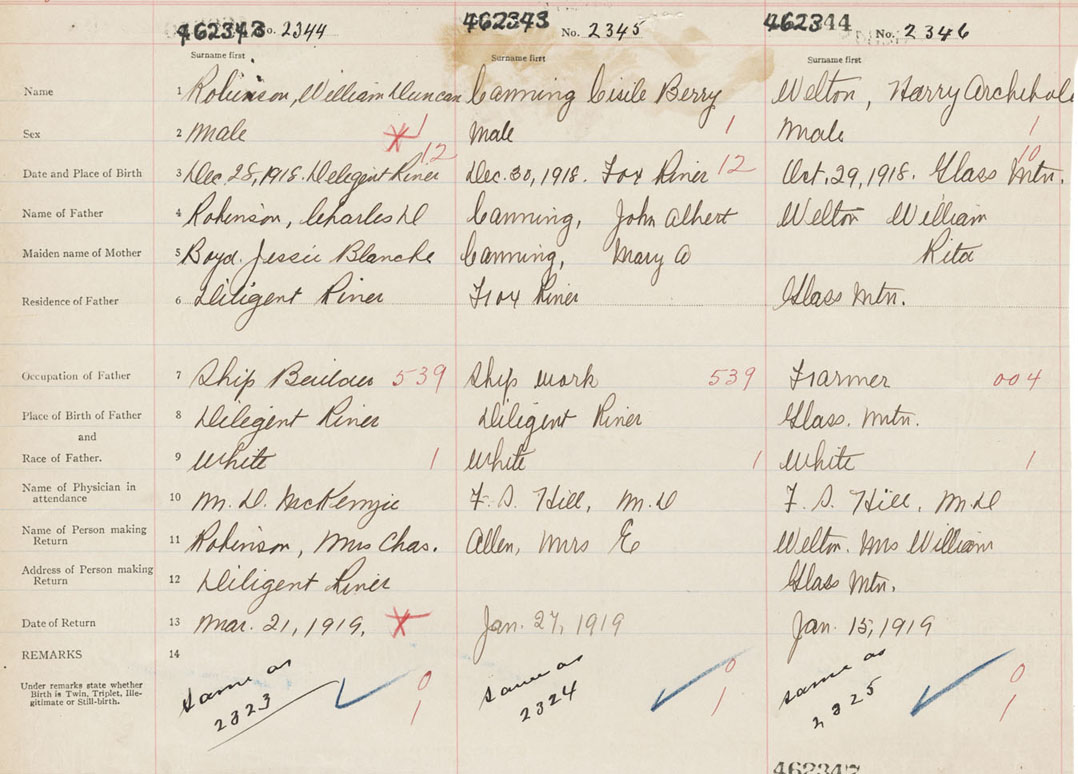 462343 No. 2344 462343 No. 2345 462344 No. 2346
Surname first Surname first Surname first
Name 1 Robinson, William Duncan Canning Cisile Berry Welton, Harry Archibal
Sex 2 Male 1 Male 1 Male 1
12 10
Date and Place of Birth 3 Dec. 28, 1918. Deligent River Dec. 30, 1918. Fox River 12 Oct. 29, 1918. Glass Mtn.
Name of Father 4 Robinson, Charles D Canning, John Albert Welton William
Maiden name of Mother 5 Boyd. Jessie Blanche Canning, Mary A Rita
Residence of Father 6 Diligent River Fox River Glass Mtn.
Occupation of Father 7 Ship Builder 539 Ship work 539 Farmer 004
Place of Birth of Father 8 Diligent River Diligent River Glass. Mtn.
and
Race of Father. 9 White 1 White 1 White 1
Name of Physician in attendance 10 M. D. McKenzie F. S. Hill, M.D F. S. Hill, M.D
Name of Person making Return 11 Robinson, Mrs Chas. Allen, Mrs E Welton. Mrs William
Address of Person making Return 12 Diligent River Glass Mtn.
Date of Return 13 Mar. 21, 1919. Jan. 27, 1919 Jan. 15, 1919
REMARKS 14
Under remarks state whether Birth is Twin, Triplet, Illegitimate or Still-birth.
Same as 2323 0 1 Same as 2324 0 1 Same as 2325 0 1